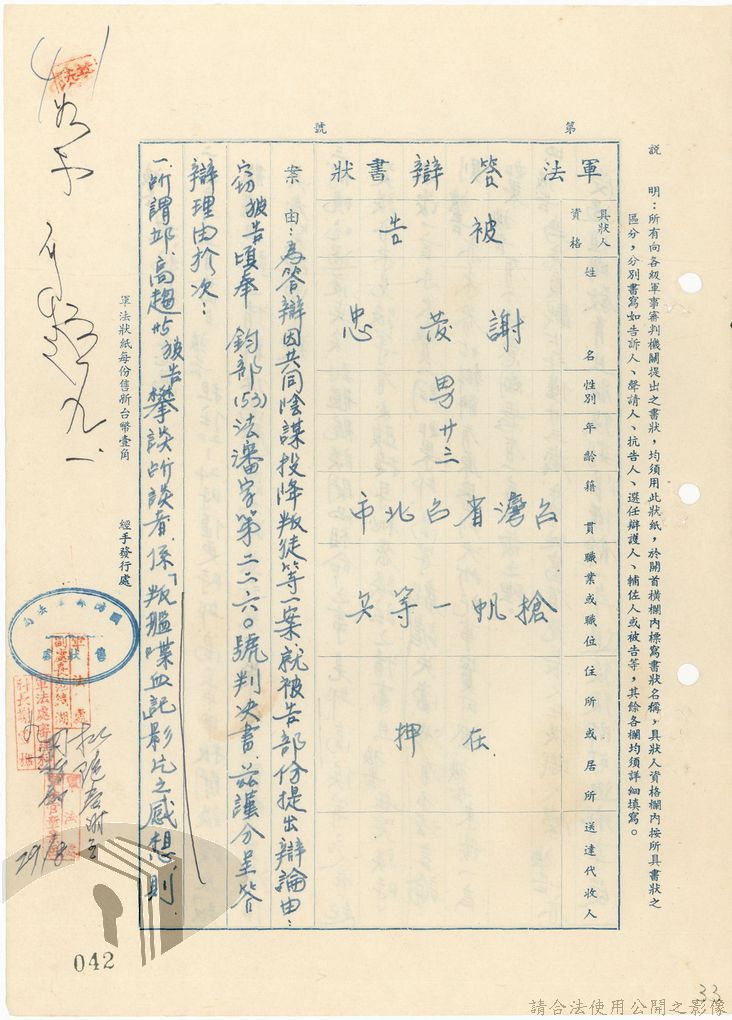 說　明：所有向各級軍事審判機關提出之書狀，均須用此狀紙，於開首橫欄內標寫書狀名稱，具狀人資格欄內按所具書狀之
區分，分別書寫如告訴人、聲請人、抗告人、選任辯護人、輔佐人或被告等，其餘各欄均須詳細填寫。
第　　號
軍法答辯書狀
具狀人資格
被告
姓名
謝發忠
性別
男
年齡
廿三
籍貫
台灣省台北市
職業或職位
槍帆一等兵
住所或居所
在押
送達代收人
案由：為答辯因共同陰謀投降叛徒等一案，就被告部份提出辯論由：
竊被告頃奉　鈞部(53)法審字第二二六○號判決書，茲謹分呈答
辯理由於次：
一、所謂邱、高、趙等與被告攀談所談者，係「叛艦喋血記」影片之感想，則
軍法狀紙每份售新台幣壹角　　經手發行處
29/8
042
33
請合法使用公開之影像